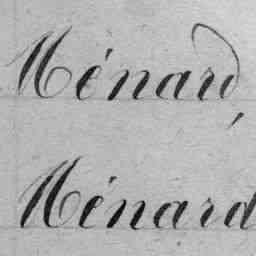 Ménard,
Ménard